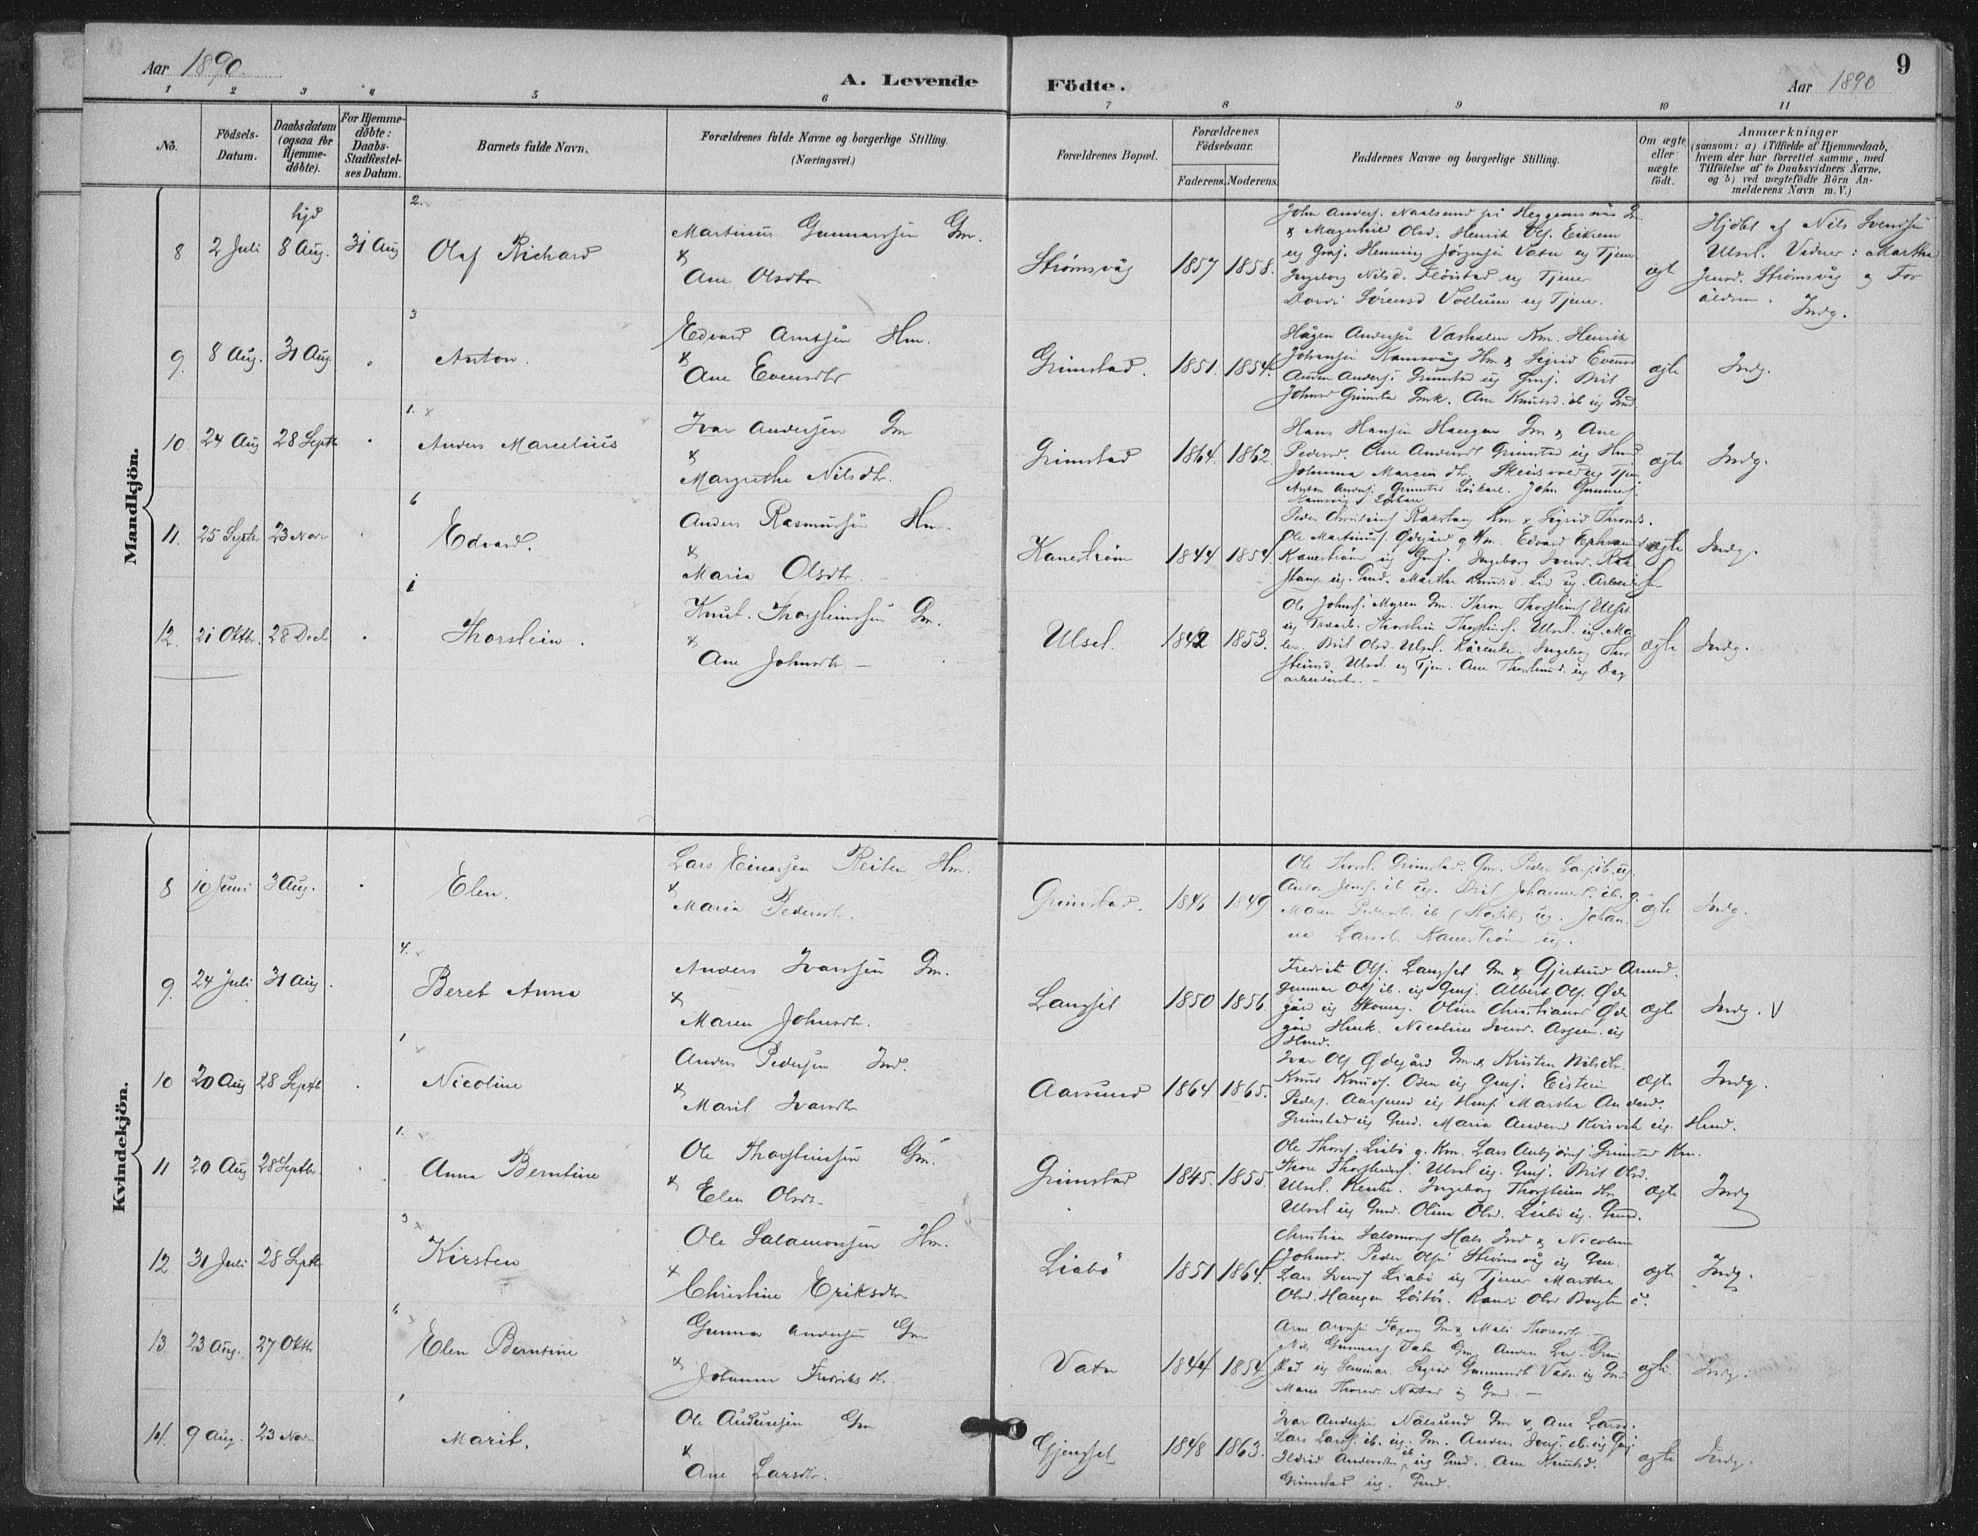 Aar 1890.
A. Levende Födte.
Aar 1890
9
1 2 3 4 5 6 7 8 9 10 11
No.
Födsels-Datum.
Daabsdatum (ogsaa for Hjemme-döbte).
For Hjemme-döbte: Daabs-Stadfæstel-ses Datum.
Barnets fulde Navn.
Forældrenes fulde Navne og borgerlige Stilling. (Næringsvei.)
Forældrenes Bopæl.
Forældrenes Födselsaar.
Faderens. Moderens.
Faddernes Navne og borgerlige Stilling.
Om ægte eller uægte födt.
Anmærkninger
(saasom: a) i Tilfælde af Hjemmedaab, hvem der har forrettet samme, med Tilföielse af to Daabsvidners Navne, og b) ved uægtefödte Börn An-melderens Navn m. V.)
Mandkjön.
8 2 Juli hjd 8 Aug. 31 Aug 2. Olaf Richard
Martinus Gunnarsen Gm. & Ane Olsdtr
Strømsvåg 1857 1858.
John Anders. Naalsund på Heggemsnås Gm
& Magnhild Olsd. Henrik Ols. Eikrem
ug Gmsj. Henning Jørgensen Vatn ug Tjener
Ingeborg Nilsd. Fløistad ug Tjener
Dordi Sörensd Vollum ug Tjener.
ægte
Hjdbt af Nils Svendsen
Ulset. Vidner: Martha
Jensd. Strømsvåg og For
ældren. Indg.
9. 8 Aug. 31 Aug. 3 Anton.
Edvard Arntsen Hm. & Ane Evensdtr
Grimstad. 1851. 1854.
Hågen Andersen Vashalen Km. Henrik
Johansen Ramsvåg Hm & Sigrid Evensd
Anders. Grimstad ug Gmsj. Brit
Johnsd Grimstad Gmk. Ane Knutsd. ib ug Gmd
ægte Indg.
10. 24 Aug 28 Septb 1. x Anders Marcelius
Ivar Andersen Gm & Margrethe Nilsdtr.
Grimstad 1864. 1862.
Hans Hansen Haugen Gm & Ane
Pedersd. Ane Andersdt Grimstad ug Hmd
Johanna dtr. ug Tjen
Anton Anders. Grimstad Løskarl. John Gunners.
Ramsvig Løskarl
ægte Indg.
11. 25 Septb. 23 Nov 6 Edvard.
Anders Rasmussen Hm. & Maria Olsdtr
Kanestrøm 1844 1854.
Peder Christens. Rakvaag Km & Sigrid Throns.
Ole Martinus. Ødegård g. Km. Edvard Ephraims
Kanestrøm ug Gmsj. Ingeborg Iversd. Rak
stang ug. Gmd. Martha Knudsd. ug. Arbeider
ægte Indg.
12. 21 Oktb. 28 Decb. 1 Thorstein.
Knut. Thorsteinsen Gm. & Ane Johnsdtr —
Ulset. 1842 1853.
Ole Johns. Myren Gm. Thron Thorsteins Ulset
ug Thorstein Thorsteins. Ulset. ug. Ma
ler. Brit Olsd. Ulset. Kårenke. Ingeborg Thor
steinsd. Ulset ug Tjen. Ane Thorsteinsd. ug Dag
arbeiderske. —
ægte Indg.
Kvindekjön.
8 10 Juni 3 Aug. Elen.
Lars Einarsen Reiten Hm. & Maria Pedersdtr.
Grimstad. 1846 1849
Ole Thorst. Grimstad. Gm. Peder Lars. ib. ug.
Anton Jens. ib ug. Brit Johannesd. ib. g.
Maren Pedersdtr. ib ug. Johan
na Larsdt. Kanestrøm ug.
ægte Indg.
9. 24 Juli 31 Aug. 4. Beret Anna
Anders Ivarsen Gm. & Maren Johnsdtr.
Langset 1850 1856.
Fredrik Ols. Langset Gm & Gjertrud Arnesd.
Gunnar Ols ib. ug Gmsj. Albert Ols. Øde
gård ug Skomag. Oline Christiansd Øde
gård Hmk. Nicoline Iversd. Aspen ug
Hmd.
ægte Indg. V
10 20 Aug 28 Septb 1 Nicoline
Anders Pedersen Ind. & Marit Ivarsdtr
Aarsund 1864 1865.
Ivar Ols Ødegård Gm. & Kirsten Nilsdtr.
Knud Knuds. Osen ug Gmsj. Eistein
Peders. Aarsund ug Hmsj. Martha Andersd.
Grimstad ug Gmd. Maria Andersd Kvisvik ug. Hmd.
ægte Indg.
11 20 Aug 28 Septb. 1. Anna Berntine
Ole Thorsteinsen Gm. & Elen Olsdtr.
Grimstad 1845. 1855.
Ole Thors. Liabö g. Km. Lars Anbjörns. Grimstad Km.
Thron Thorsteins. Ulset ug. Gmsj. Brit Olsd.
Ulset. Kenke. Ingeborg Thorstein
Ulset ug Gmd. Oline Olsd. Liabö ug. Gmd.
ægte Indg
12 31 Juli 28 Septb 3 Kirsten
Ole Salamonsen Hm. & Christine Eriksdtr
Liabö 1851 1864.
Christian Salomons Hals Ind & Nicoline
Johnsd. Peder Olsen Strömsvåg ug Gm.
Lars Svends Liabö ug Tjener Martha
Olsd. Haugen Löskr. Randi Olsd Bergtun
ægte Indg.
13. 23 Aug. 27 Oktb 6 Elen Berntine
Gunnar Andersen Gm & Johanna Fredriksdtr.
Vatn 1844 1854.
Arne Arnesen Gm & Mali Thoresdtr. —
Nils Gunners Vatn Gmsj. Anders Lars. Grim
stad ug Seminar. Sigrid Gunnersdt Vatn ug Gmd
Maren Thoresd. ug Gmd. —
ægte. Indg.
14. 9 Aug. 23 Nov 1 Marit.
Ole Audunsen Gm & Ane Larsdtr.
Gjengset 1848 1863.
Ivar Andersen Nålsund Gm & Ane Larsd.
Lars Lars. ib. ug. Gm. Anders Ivers. ib. ug Gmsj
Ildrid Andersdtr ib ug Gmd. Ane Knutsd.
Grimstad ug. Gmd.
ægte Indg.